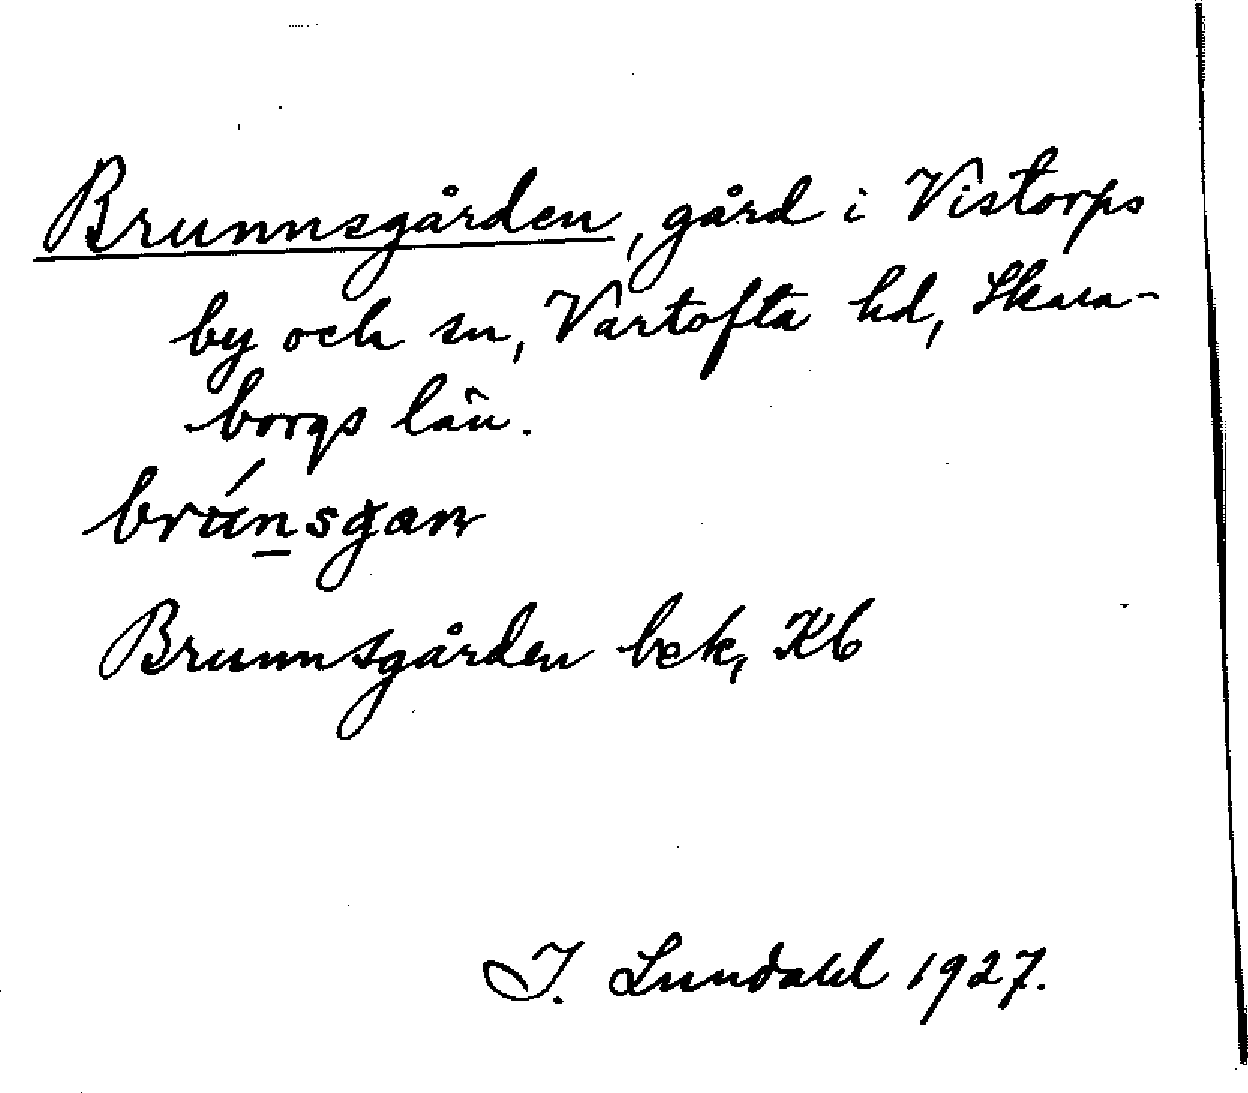 Brunnsgården, gård i Vistorps
by och sn, Vartofta hd, Skara-
borgs län.
brúnsgaɳ
Brunnsgården bek, Kb
I. Lundahl 1927.